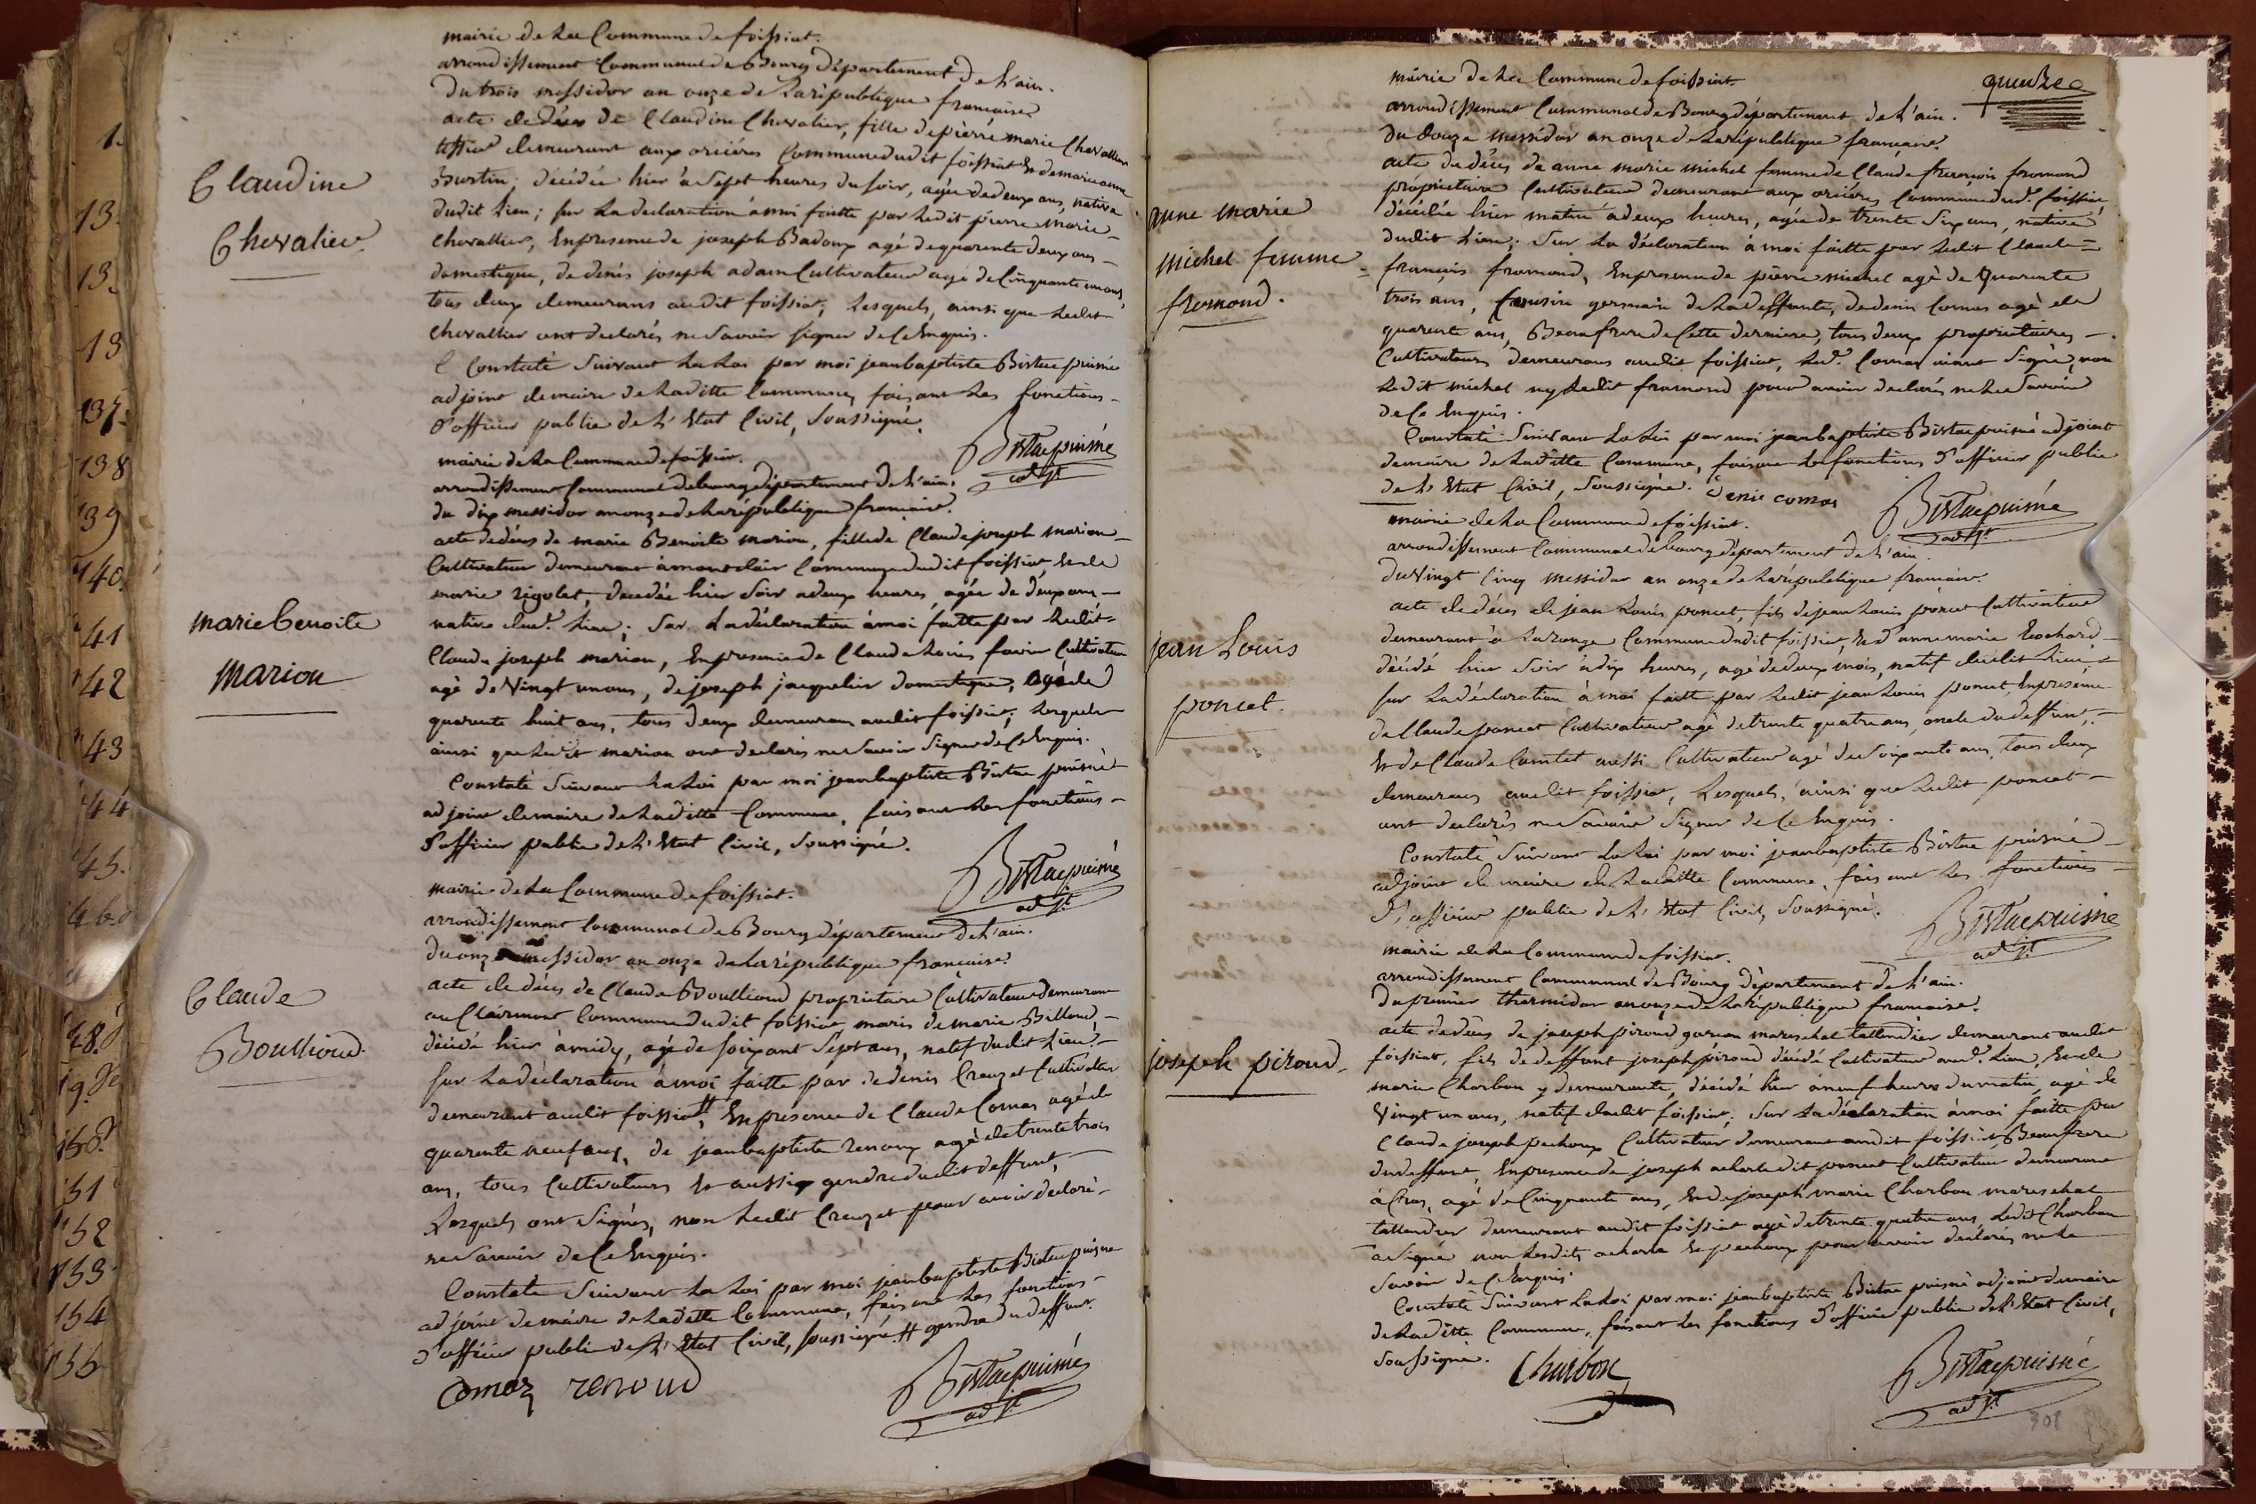 mairie de La Commune de foissiat.
arrondissement Communal de Bourg département de L'ain.
Du trois messidor an onze de La république francaise
acte de décès de Claudine Chevalier, fille de pierre marie Chevallier
tissier demeurant aux oriéres Commune dudit foissiat Et de marie anne
Burtin; décédée hier à Sept heures du soir, agée de deux ans, native
dudit Lieu; sur La declaration à moi faitte par Ledit pierre marie
Chevallier, En presence de joseph Badoux agé de quarente deux ans
domestique, de denis joseph adam Cultivateur agé de Cinquante un ans,
tous deux demeurans audit foissiat; Lesquels, ainsi que Ledit
Chevallier ont declarés ne Savoir signer de Ce Enquis.
Constaté Suivant La Loi par moi jean baptiste Bistac puisné
adjoint de maire de Laditte Commune, faisant Les fonctions
d'officier public de L'Etat Civil, Soussigné.
Bistac puisné
adjt.
Claudine
Chevalier
mairie de La Commune de foissiat.
arrondissement Communal de bourg département de L'ain.
du dix messidor an onze de La république francaise.
acte de décès de marie Benoite marion, fille de Claude joseph marion
Cultivateur demeurant à montclair Commune dudit foissiat, Et de
marie rigolet, decedée hier Soir a deux heures, agée de deux ans
native dud. Lieu; Sur La déclaration à moi faitte par Ledit
Claude joseph marion, En presence de Claude Louis favier Cultivateur
agé de Vingt un ans, de joseph jacquelin domestique, agé de
quarente huit ans, tous deux demeurans audit foissiat; Lesquels
ainsi que Ledit marion ont declarés ne Savoir Signer de Ce Enquis.
Constaté Suivant La Loi par moi jean baptiste Bistac puisné
adjoint de maire de Laditte Commune, faisant Les fonctions
d'officier public de L'Etat Civil, Soussigné.
Bistac puisné
adjt.
marie benoite
marion
mairie de La Commune de foissiat.
arrondissement Communal de Bourg département de L'ain.
du onze messidor an onze de La république française.
acte de décès de Claude Boullioud proprietaire Cultivateur demeurant
au Clairmont Commune dudit foissiat, maris de marie Billoud,
décédé hier à midy, agé de soixant Sept ans, natif dudit Lieu;
sur La déclaration à moi faitte par de denis Creuzet Cultivateur
demeurant audit foissiat #, En presence de Claude Comas agé de
quarente neuf ans, de jean baptiste renoux agé de trente trois
ans, tous Cultivateurs Et aussi gendre dudit deffunt,
Lesquels ont Signés, non Ledit Creuzet pour avoir declaré
ne Savoir de Ce Enquis.
Constaté Suivant La Loi par moi jean baptiste Bistac puisné
adjoint de maire de Laditte Commune, faisant Les fonctions
d'officier public de L'Etat Civil, soussigné. # gendre du deffunt.
Comaz renoud
Bistac puisné
adjt.
Claude
Boullioud.
quinze
mairie de La Commune de foissiat
arrondissement Communal de Bourg département de L'ain.
du douze messidor an onze de La république francaise.
acte de décès de anne marie michel femme de Claude francois fromond
propriétaire Cultivateur demeurant aux oriéres Commune dud. foissiat,
décédée hier matin à deux heures, agée de trente Six ans, native
dudit Lieu; Sur La déclaration à moi faitte par Ledit Claude
françois fromond, En presence de pierre michel agé de quarente
trois ans, Cousin germain de La deffunte, de denis Comas agé de
quarente ans, Beau frere de Cette derniere, tous deux proprietaires
Cultivateurs demeurans audit foissiat, Led. Comas aiant Signé, non
Ledit michel ny Ledit fromond pour avoir declarés ne Le Savoir
de Ce Enquis.
Constaté Suivant La Loi par moi jean baptiste Bistac puisné adjoint
de maire de Laditte Commune, faisant Les fonctions d'officier public
de L'Etat Civil, Soussigné. denis comas
Bistac puisné
adjt.
anne marie
michel femme
fromond.
mairie de La Commune de foissiat.
arrondissement Communal de bourg département de L'ain.
du Vingt Cinq messidor an onze de La république francaise.
acte de décès de jean Louis poncet, fils de jean Louis poncet Cultivateur
demeurant à La range Commune dudit foissiat, Et d'anne marie Bochard
décédé hier Soir à dix heures, agé de deux mois, natif dudit Lieu
sur La déclaration à moi faitte par Ledit jean Louis poncet, En presence
de Claude poncet Cultivateur agé de trente quatre ans, oncle du deffunt,
Et de Claude Comtet aussi Cultivateur agé de Soixante ans, tous deux
demeurans audit foissiat, Lesquels, ainsi que Ledit poncet
ont declarés ne Savoir Signer de Ce Enquis.
Constaté Suivant La Loi par moi jean baptiste Bistac puisné
adjoint de maire de Laditte Commune, faisant Les fonctions
d'officier public de L'Etat Civil, Soussigné.
Bistac puisné
adjt.
jean Louis
poncet.
mairie de La Commune de foissiat.
arrondissement Communal de Bourg département de L'ain.
Du premier thermidor an onze de La république francaise.
acte de décès de joseph piroud garcon mareschal tallendier demeurant audit
foissiat, fils de deffunt joseph piroud décédé Cultivateur aud. Lieu, Et de
marie Charbon y demeurante, décédé hier à neuf heures du matin, agé de
Vingt un ans, natif dudit foissiat; Sur La déclaration à moi faitte par
Claude joseph pechoux Cultivateur demeurant audit foissiat Beau frere
du deffunt, En presence de joseph acharle dit poncet Cultivateur demeurant
à Cras, agé de Cinquante ans, Et de joseph marie Charbon mareschal
tallendier demeurant audit foissiat agé de trente quatre ans, Ledit Charbon
a Signé non Lesdits acharle Et pechoux pour avoir declarés ne Le
Savoir de Ce Enquis.
Constaté Suivant La Loi par moi jean baptiste Bistac puisné adjoint de maire
de Laditte Commune, faisant Les fonctions d'officier public de L'Etat Civil,
soussigné.
Charbon
Bistac puisné
adjt.
joseph piroud
301